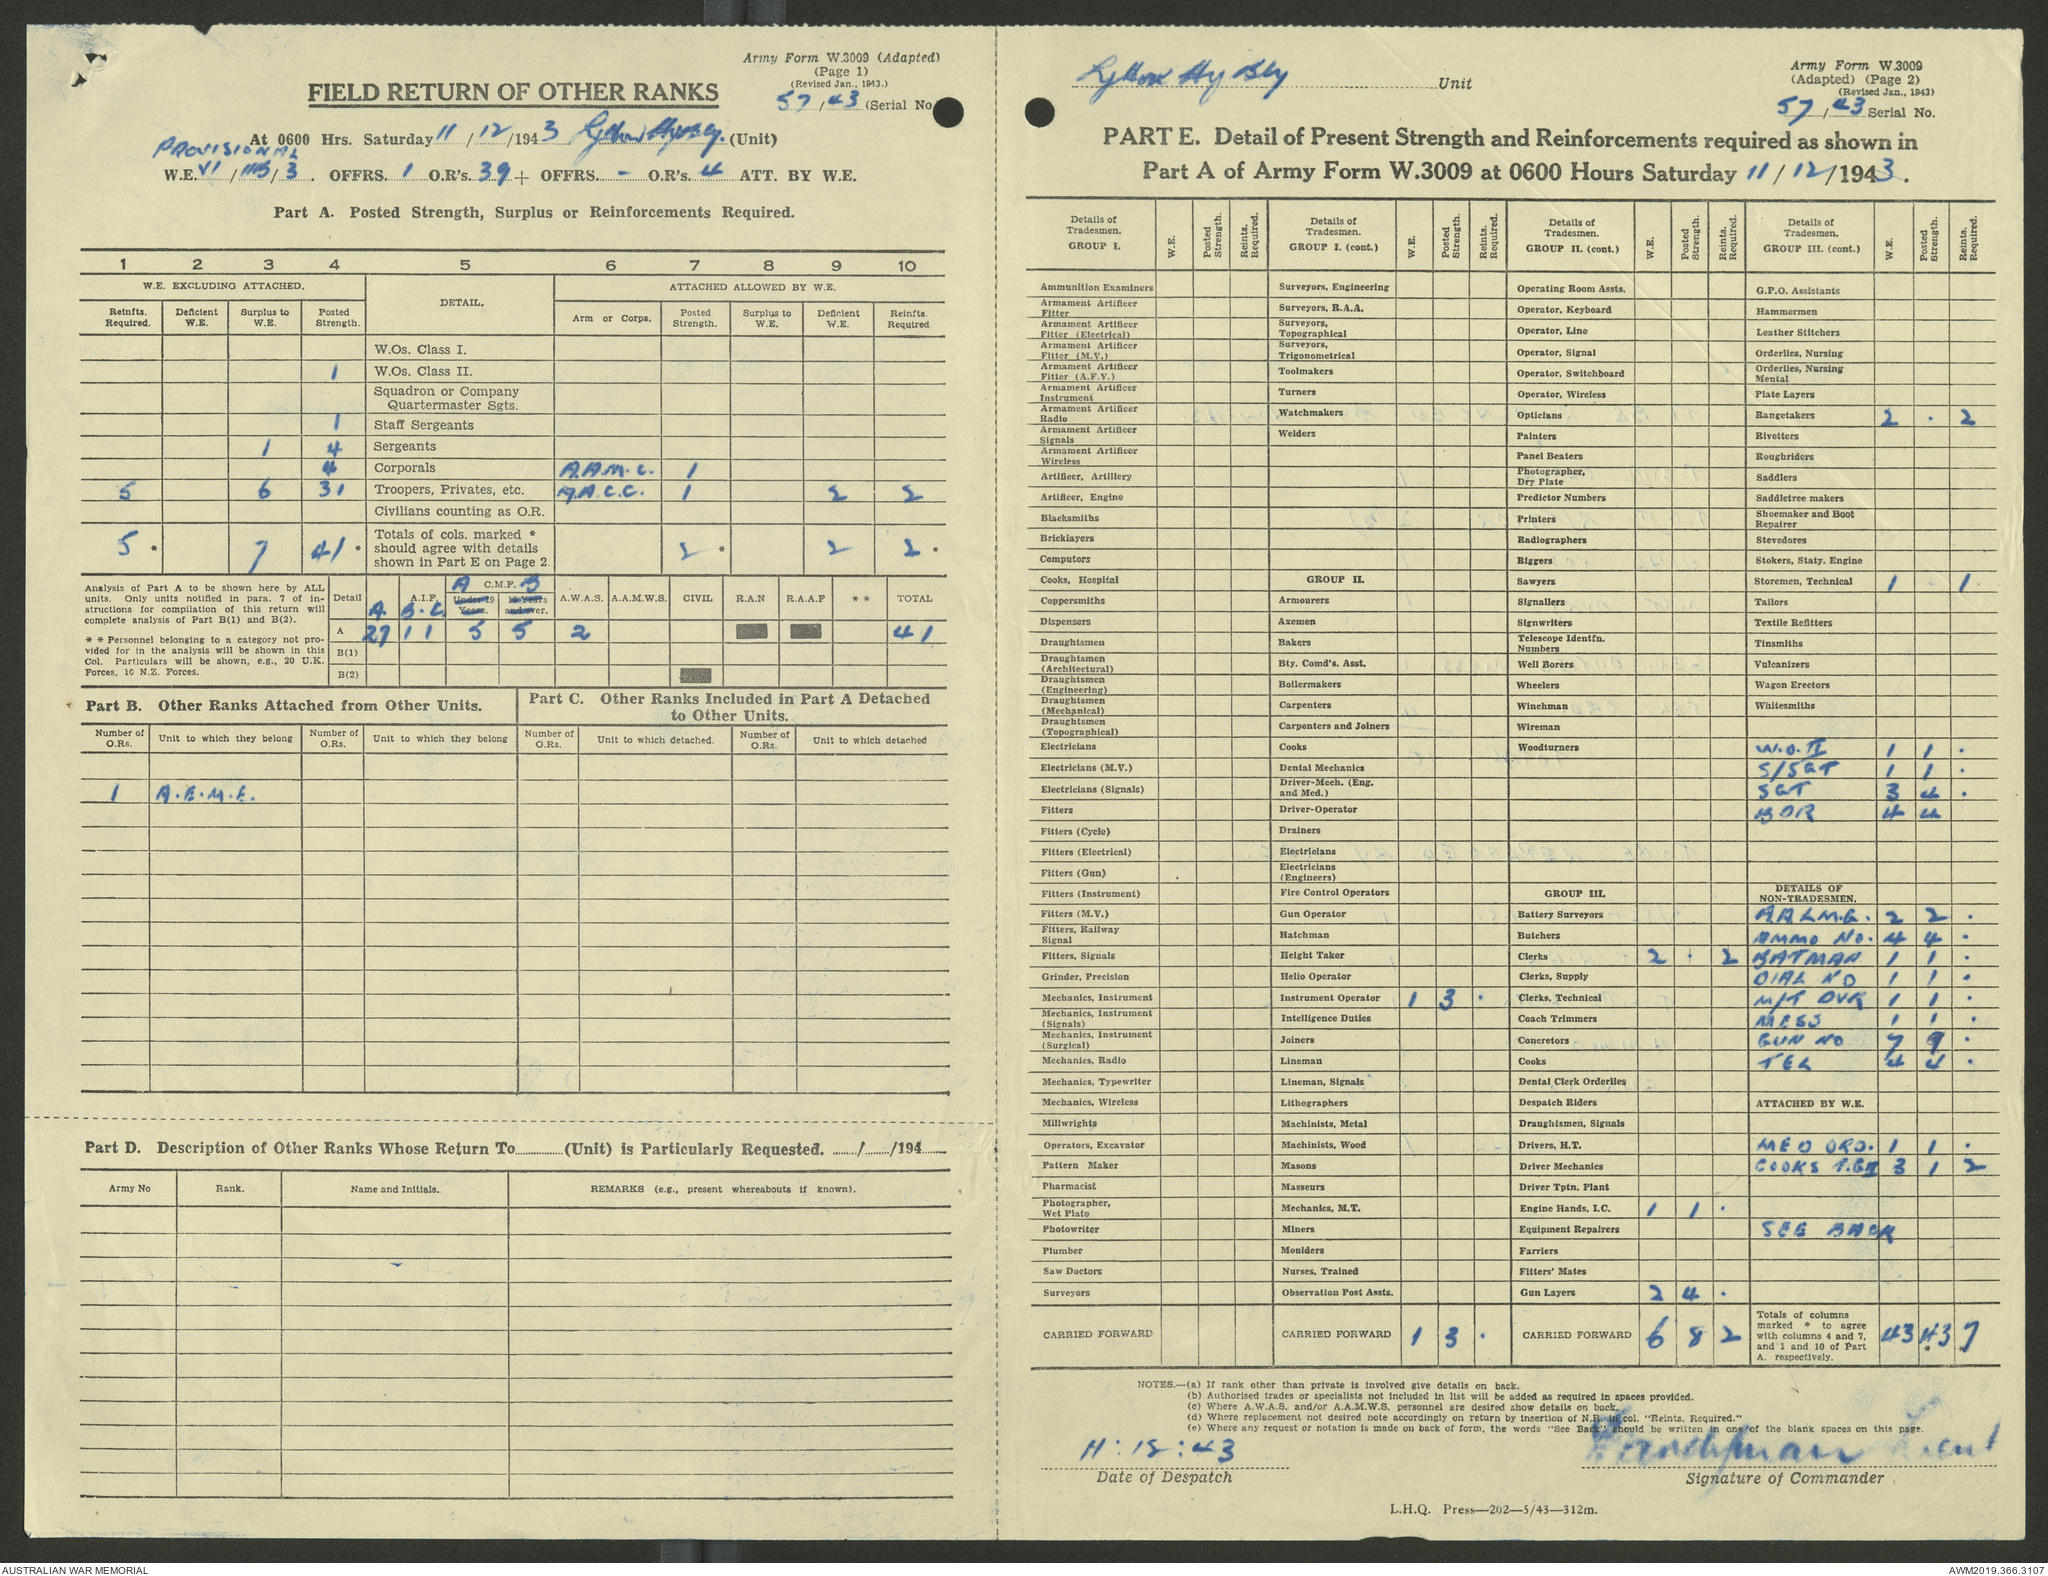 Army Form W.3009 (Adapted)
(Page 1)
(Revised Jan., 1943.)
57/43 (Serial No.
FIELD RETURN OF OTHER RANKS
At 0600 Hrs. Saturday 11/12/1943 Lytton Hy Bty. (Unit)
PROVISIONAL
W.E. VI/ /3. OFFRS. 1 O.R's. 39 + OFFRS. - O.R's. 4 ATT. BY W.E.
Part A. Posted Strength, Surplus or Reinforcements Required.
1 2 3 4 5 6 7 8 9 10
W.E. EXCLUDING ATTACHED. DETAIL. ATTACHED ALLOWED BY W.E.
Reinfts. Required. Deficient W.E. Surplus to W.E. Posted Strength. Arm or Corps. Posted Strength. Surplus to W.E. Deficient W.E. Reinfts. Required
W.Os. Class I.
1 W.Os. Class II.
Squadron or Company Quartermaster Sgts.
1 Staff Sergeants
1 4 Sergeants
4 Corporals A.A.M.C. 1
5 6 31 Troopers, Privates, etc. A.A.C.C. 1 2 2
Civilians counting as O.R.
5 * 7 41 * Totals of cols. marked * should agree with details shown in Part E on Page 2. 2 * 2 2 *
Analysis of Part A to be shown here by ALL units. Only units notified in para. 7 of instructions for compilation of this return will complete analysis of Part B(1) and B(2).
* * Personnel belonging to a category not provided for in the analysis will be shown in this Col. Particulars will be shown, e.g., 20 U.K. Forces, 10 N.Z. Forces.
Detail A.I.F. A. B. C. C.M.F. A B Under 19 Years. 19 Years and over. A.W.A.S. A.A.M.W.S. CIVIL R.A.N R.A.A.F * * TOTAL
A 27 1 1 5 5 2 41
B(1)
B(2)
Part B. Other Ranks Attached from Other Units.
Part C. Other Ranks Included in Part A Detached to Other Units.
Number of O.Rs. Unit to which they belong Number of O.Rs. Unit to which they belong Number of O.Rs. Unit to which detached. Number of O.Rs. Unit to which detached
1 A.E.M.E.
Part D. Description of Other Ranks Whose Return To............(Unit) is Particularly Requested. ....../....../194......
Army No Rank. Name and Initials. REMARKS (e.g., present whereabouts if known).
Lytton Hy Bty Unit
Army Form W.3009
(Adapted) (Page 2)
(Revised Jan., 1943)
57/43 Serial No.
PART E. Detail of Present Strength and Reinforcements required as shown in
Part A of Army Form W.3009 at 0600 Hours Saturday 11/12/1943.
Details of Tradesmen. GROUP I. W.E. Posted Strength. Reints. Required.
Ammunition Examiners
Armament Artificer Fitter
Armament Artificer Fitter (Electrical)
Armament Artificer Fitter (M.V.)
Armament Artificer Fitter (A.F.V.)
Armament Artificer Instrument
Armament Artificer Radio
Armament Artificer Signals
Armament Artificer Wireless
Artificer, Artillery
Artificer, Engine
Blacksmiths
Bricklayers
Computors
Cooks, Hospital
Coppersmiths
Dispensers
Draughtsmen
Draughtsmen (Architectural)
Draughtsmen (Engineering)
Draughtsmen (Mechanical)
Draughtsmen (Topographical)
Electricians
Electricians (M.V.)
Electricians (Signals)
Fitters
Fitters (Cycle)
Fitters (Electrical)
Fitters (Gun)
Fitters (Instrument)
Fitters (M.V.)
Fitters, Railway Signal
Fitters, Signals
Grinder, Precision
Mechanics, Instrument
Mechanics, Instrument (Signals)
Mechanics, Instrument (Surgical)
Mechanics, Radio
Mechanics, Typewriter
Mechanics, Wireless
Millwrights
Operators, Excavator
Pattern Maker
Pharmacist
Photographer, Wet Plato
Photowriter
Plumber
Saw Doctors
Surveyors
CARRIED FORWARD
Details of Tradesmen. GROUP I. (cont.) W.E. Posted Strength. Reints. Required.
Surveyors, Engineering
Surveyors, R.A.A.
Surveyors, Topographical
Surveyors, Trigonometrical
Toolmakers
Turners
Watchmakers
Welders
GROUP II.
Armourers
Axemen
Bakers
Bty. Comd's. Asst.
Boilermakers
Carpenters
Carpenters and Joiners
Cooks
Dental Mechanics
Driver-Mech. (Eng. and Med.)
Driver-Operator
Drainers
Electricians
Electricians (Engineers)
Fire Control Operators
Gun Operator
Hatchman
Height Taker
Helio Operator
Instrument Operator 1 3 .
Intelligence Duties
Joiners
Lineman
Lineman, Signals
Lithographers
Machinists, Metal
Machinists, Wood
Masons
Masseurs
Mechanics, M.T.
Miners
Moulders
Nurses, Trained
Observation Post Assts.
CARRIED FORWARD 1 3 .
Details of Tradesmen. GROUP II. (cont.) W.E. Posted Strength. Reints. Required.
Operating Room Assts.
Operator, Keyboard
Operator, Line
Operator, Signal
Operator, Switchboard
Operator, Wireless
Opticians
Painters
Panel Beaters
Photographer, Dry Plate
Predictor Numbers
Printers
Radiographers
Riggers
Sawyers
Signallers
Signwriters
Telescope Identfn. Numbers
Well Borers
Wheelers
Winchman
Wireman
Woodturners
GROUP III.
Battery Surveyors
Butchers
Clerks 2 . 2
Clerks, Supply
Clerks, Technical
Coach Trimmers
Concretors
Cooks
Dental Clerk Orderlies
Despatch Riders
Draughtsmen, Signals
Drivers, H.T.
Driver Mechanics
Driver Tptn. Plant
Engine Hands, I.C. 1 1 .
Equipment Repairers
Farriers
Fitters' Mates
Gun Layers 2 4 .
CARRIED FORWARD 6 8 2
Details of Tradesmen. GROUP III. (cont.) W.E. Posted Strength. Reints. Required.
G.P.O. Assistants
Hammermen
Leather Stitchers
Orderlies, Nursing
Orderlies, Nursing Mental
Plate Layers
Rangetakers 2 . 2
Rivetters
Roughriders
Saddlers
Saddletree makers
Shoemaker and Boot Repairer
Stevedores
Stokers, Staty. Engine
Storemen, Technical 1 - 1.
Tailors
Textile Refitters
Tinsmiths
Vulcanizers
Wagon Erectors
Whitesmiths
W.O.II 1 1 .
S/SGT 1 1 .
SGT 3 4 .
BDR 4 4
DETAILS OF NON-TRADESMEN.
A.A.L.M.G. 2 2 .
AMMO NO. 4 4 .
BATMAN 1 1 .
DIAL NO 1 1 .
M/T DVR 1 1 .
MESS 1 1 .
GUN NO 7 9 .
TEL 4 4 .
ATTACHED BY W.E.
MED ORD. 1 1 .
COOKS T.GII 3 1 2
SEE BACK
Totals of columns marked * to agree with columns 4 and 7, and 1 and 10 of Part A. respectively. 43 43 * 7
NOTES.—(a) If rank other than private is involved give details on back.
(b) Authorised trades or specialists not included in list will be added as required in spaces provided.
(c) Where A.W.A.S. and/or A.A.M.W.S. personnel are desired show details on back.
(d) Where replacement not desired note accordingly on return by insertion of N.R. in col. "Reints. Required."
(e) Where any request or notation is made on back of form, the words "See Back" should be written in one of the blank spaces on this page.
11:12:43
Date of Despatch
Lieut
Signature of Commander
L.H.Q. Press—202—5/43—312m.
AUSTRALIAN WAR MEMORIAL
AWM2019.366.3107